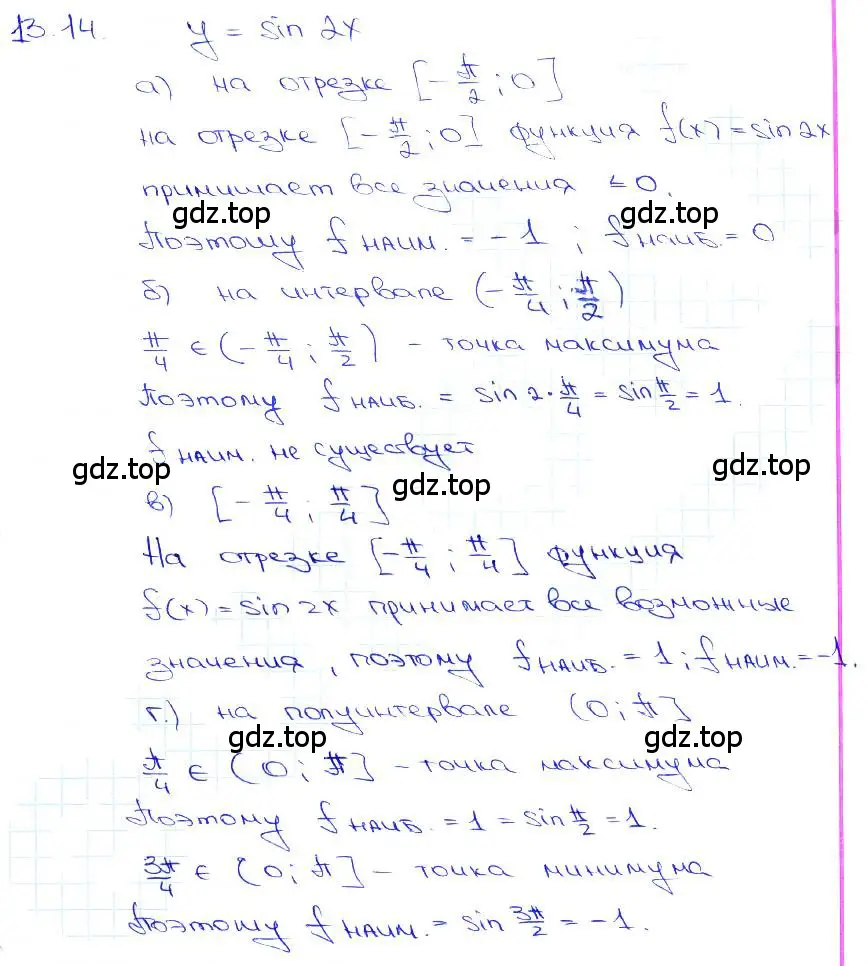 13.14. y = sin 2x
а) на отрезке [-π/2; 0]
на отрезке [-π/2; 0] функция f(x) = sin 2x
принимает все значения ≤ 0.
gdz.top gdz.top
Поэтому f наим. = -1 ; f наиб. = 0
б) на интервале (-π/4; π/2)
π/4 ∈ (-π/4; π/2) - точка максимума
Поэтому f наиб. = sin 2·π/4 = sin π/2 = 1.
f наим. не существует
gdz.top gdz.top gdz.top
в) [-π/4; π/4]
На отрезке [-π/4; π/4] функция
f(x) = sin 2x принимает все возможные
значения, поэтому f наиб. = 1; f наим. = -1.
г.) на полуинтервале (0; π]
gdz.top gdz.top
π/4 ∈ (0; π] - точка максимума
Поэтому f наиб. = 1 = sin π/2 = 1.
3π/4 ∈ (0; π] - точка минимума
Поэтому f наим. = sin 3π/2 = -1.